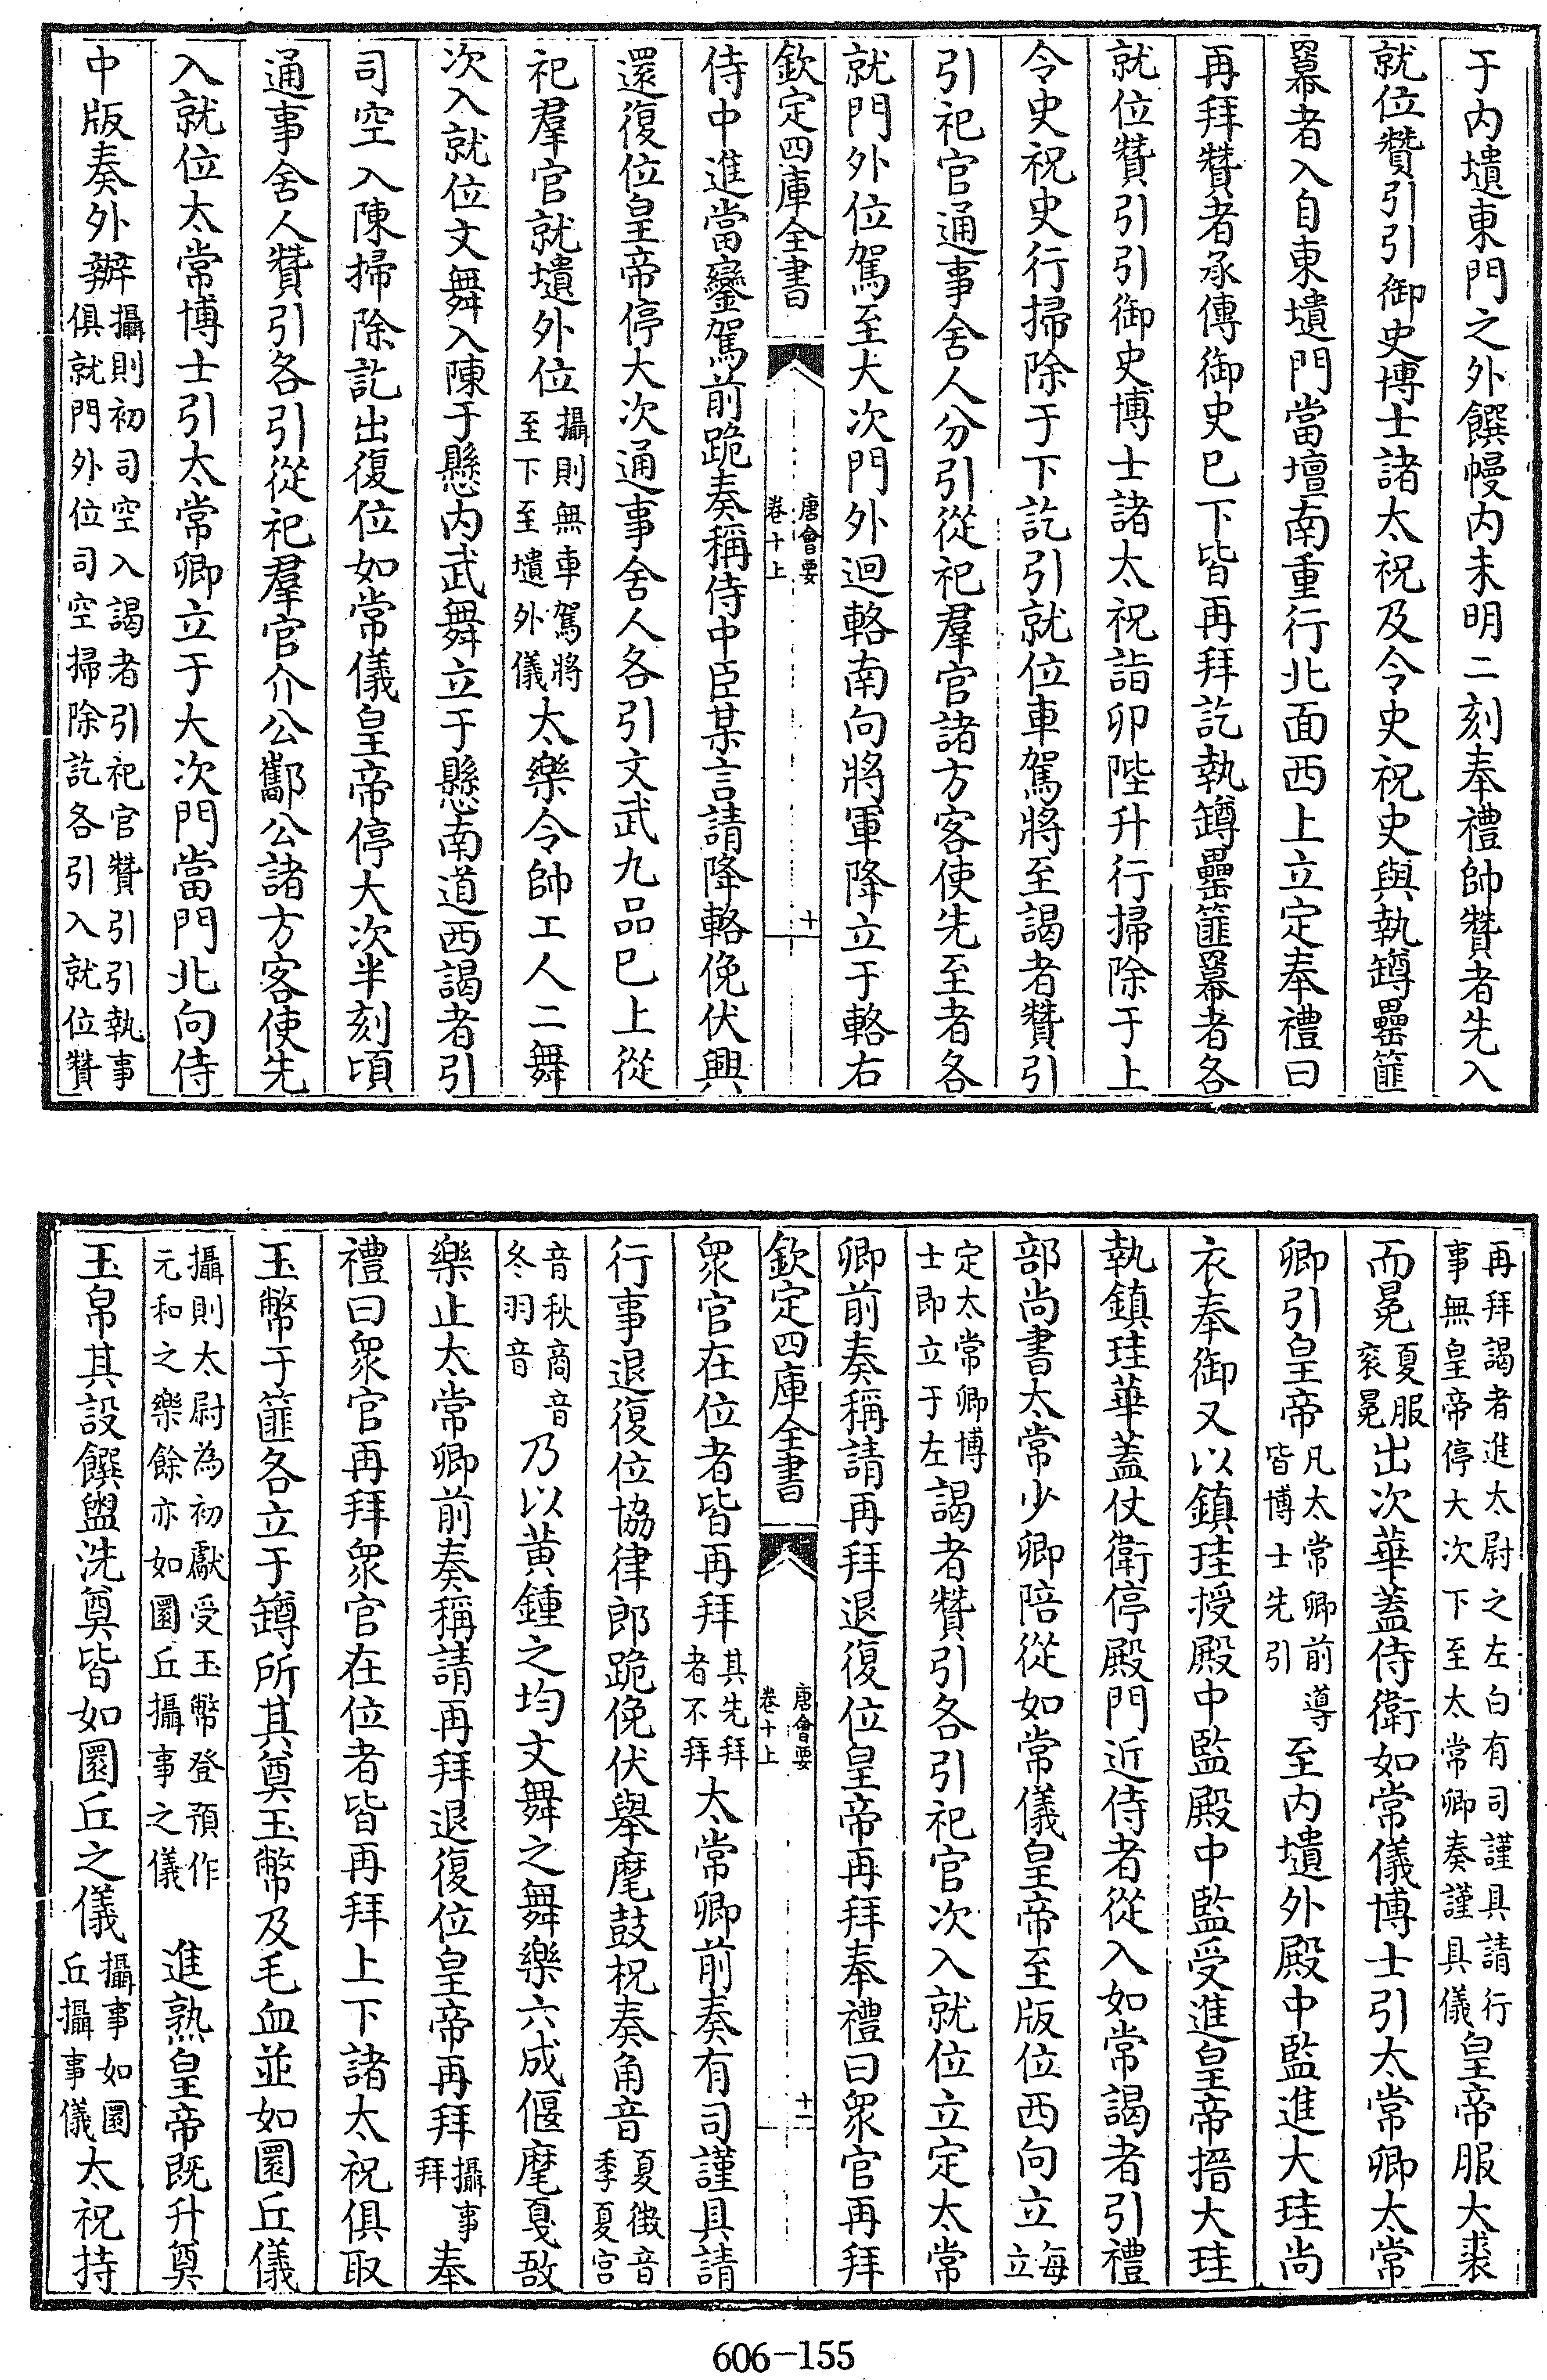 于内壝東門之外饌幔内未明二刻奉禮帥贊者先入
就位贊引引御史博士諸太祝及令史祝史與執罇罍篚
羃者入自東壝門當壇南重行北面西上立定奉禮曰
再拜贊者承傳御史已下皆再拜訖執罇罍篚羃者各
就位贊引引御史博士諸太祝詣卯陛升行掃除于上
令史祝史行掃除于下訖引就位車駕將至謁者贊引
引祀官通事舍人分引從祀羣官諸方客使先至者各
就門外位駕至大次門外迴輅南向將軍降立于輅右
欽定四庫全書
唐會要
卷十上
十
侍中進當鑾駕前跪奏稱侍中臣某言請降輅俛伏興
還復位皇帝停大次通事舍人各引文武九品已上從
祀羣官就壝外位攝則無車駕將至下至壝外儀太樂令帥工人二舞
次入就位文舞入陳于懸内武舞立于懸南道西謁者引
司空入陳掃除訖出復位如常儀皇帝停大次半刻頃
通事舍人贊引各引從祀羣官介公酅公諸方客使先
入就位太常博士引太常卿立于大次門當門北向侍
中版奏外辦攝則初司空入謁者引祀官贊引引執事俱就門外位司空掃除訖各引入就位贊
再拜謁者進太尉之左白有司謹具請行事無皇帝停大次下至太常卿奏謹具儀皇帝服大裘
而冕夏服衮冕出次華蓋侍衛如常儀博士引太常卿太常
卿引皇帝凡太常卿前導皆博士先引至内壝外殿中監進大珪尚
衣奉御又以鎮珪授殿中監殿中監受進皇帝搢大珪
執鎮珪華蓋仗衛停殿門近侍者從入如常謁者引禮
部尚書太常少卿陪從如常儀皇帝至版位西向立每立
定太常卿博士即立于左謁者贊引各引祀官次入就位立定太常
卿前奏稱請再拜退復位皇帝再拜奉禮曰衆官再拜
欽定四庫全書
唐會要
卷十上
十一
衆官在位者皆再拜其先拜者不拜太常卿前奏有司謹具請
行事退復位協律郎跪俛伏舉麾鼓柷奏角音夏徵音季夏宫
音秋商音冬羽音乃以黄鍾之均文舞之舞樂六成偃麾戛敔
樂止太常卿前奏稱請再拜退復位皇帝再拜攝事拜奉
禮曰衆官再拜衆官在位者皆再拜上下諸太祝俱取
玉幣于篚各立于罇所其奠玉幣及毛血並如圜丘儀
攝則太尉為初獻受玉幣登預作元和之樂餘亦如圜丘攝事之儀　進熟皇帝既升奠
玉帛其設饌盥洗奠皆如圜丘之儀攝事如圜丘攝事儀太祝持
606-155